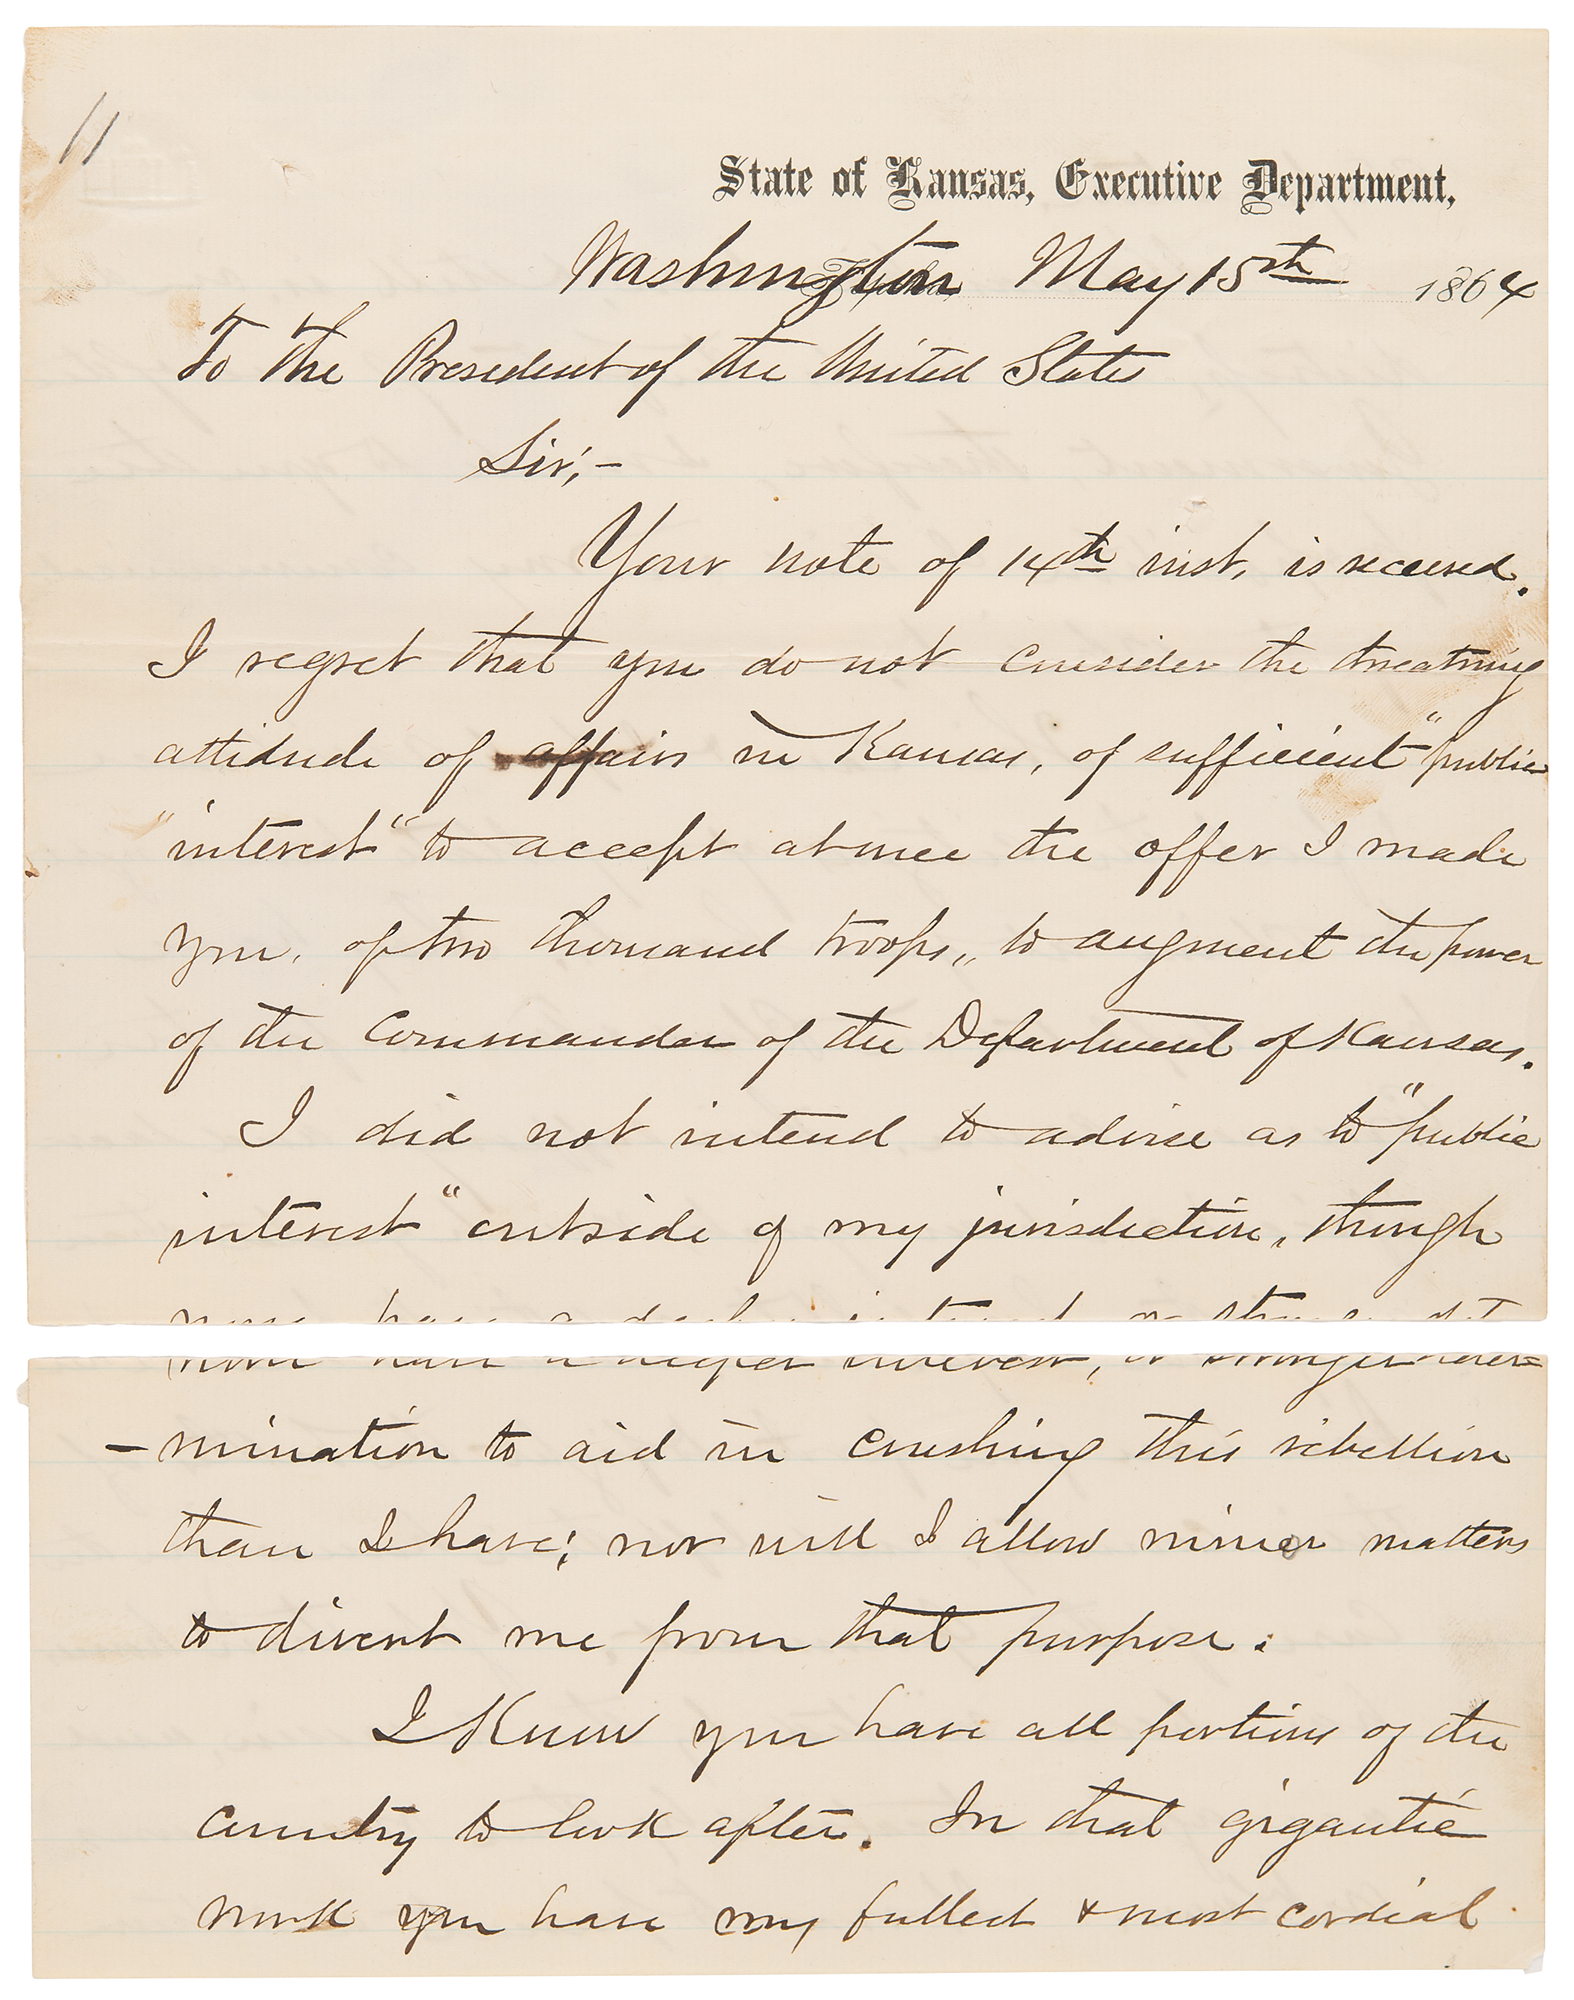 11
State of Kansas, Executive Department,
Washington May 15th 1864
To the President of the United States
Sir;-
Your note of 14th inst, is received.
I regret that you do not consider the threatning
attidude of affairs in Kansas, of sufficient "public
"interest" to accept at once the offer I made
you, of two thousand troops, to augment the power
of the Commander of the Department of Kansas.
I did not intend to advise as to "public
interest" outside of my jurisdiction, though
none have a deeper interest, or stronger deter=
-mination to aid in crushing this rebellion
than I have; nor will I allow minor matters
to divert me from that purpose.
I Know you have all portions of the
country to look after. In that gigantic
work you have my fullest & most cordial